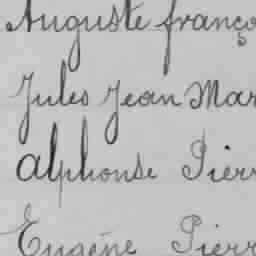 Auguste franço
Jules Jean Mar
Alphonse Pierr
Eugène Pierr